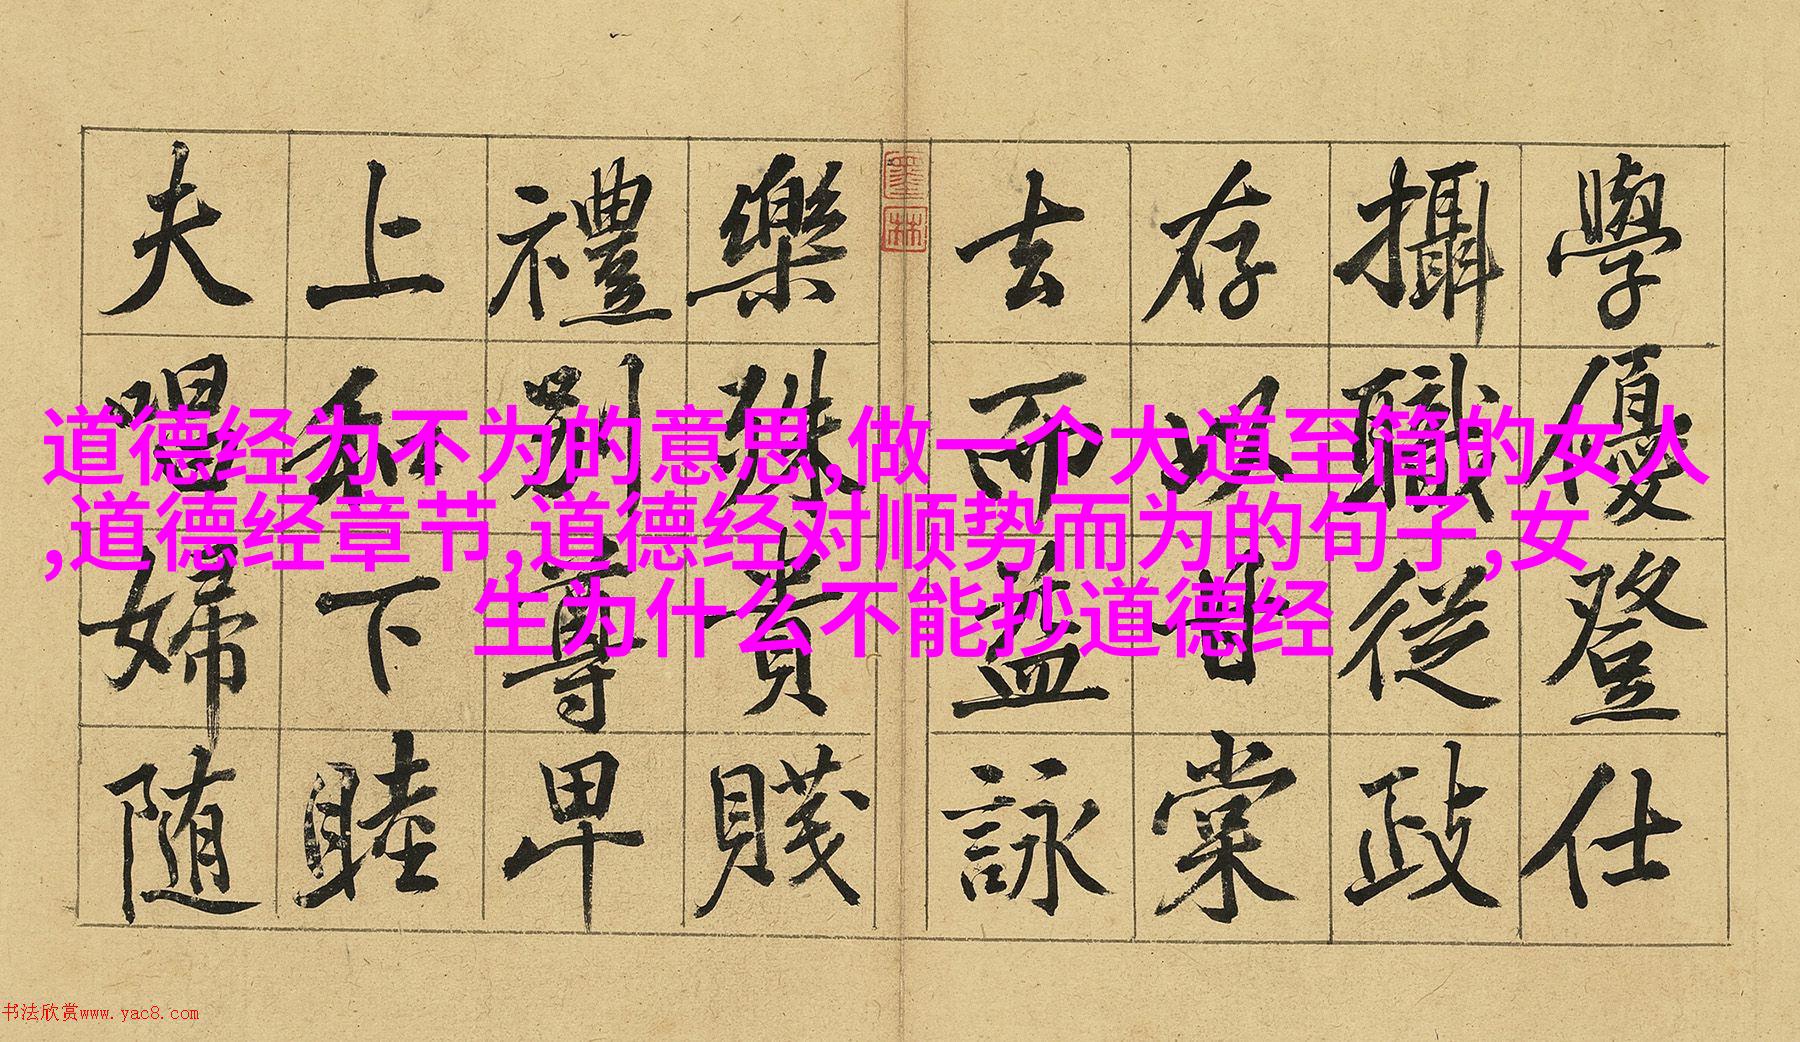 學優登仕
攝職從政
存以甘棠
去而益詠
樂殊貴賤
禮別尊卑
上和下睦
夫唱婦随
墨林
道德经为不为的意思,做一个大道至简的女人
,道德经章节,道德经对顺势而为的句子,女
生为什么不能抄道德经
书法欣赏www.yac8.com